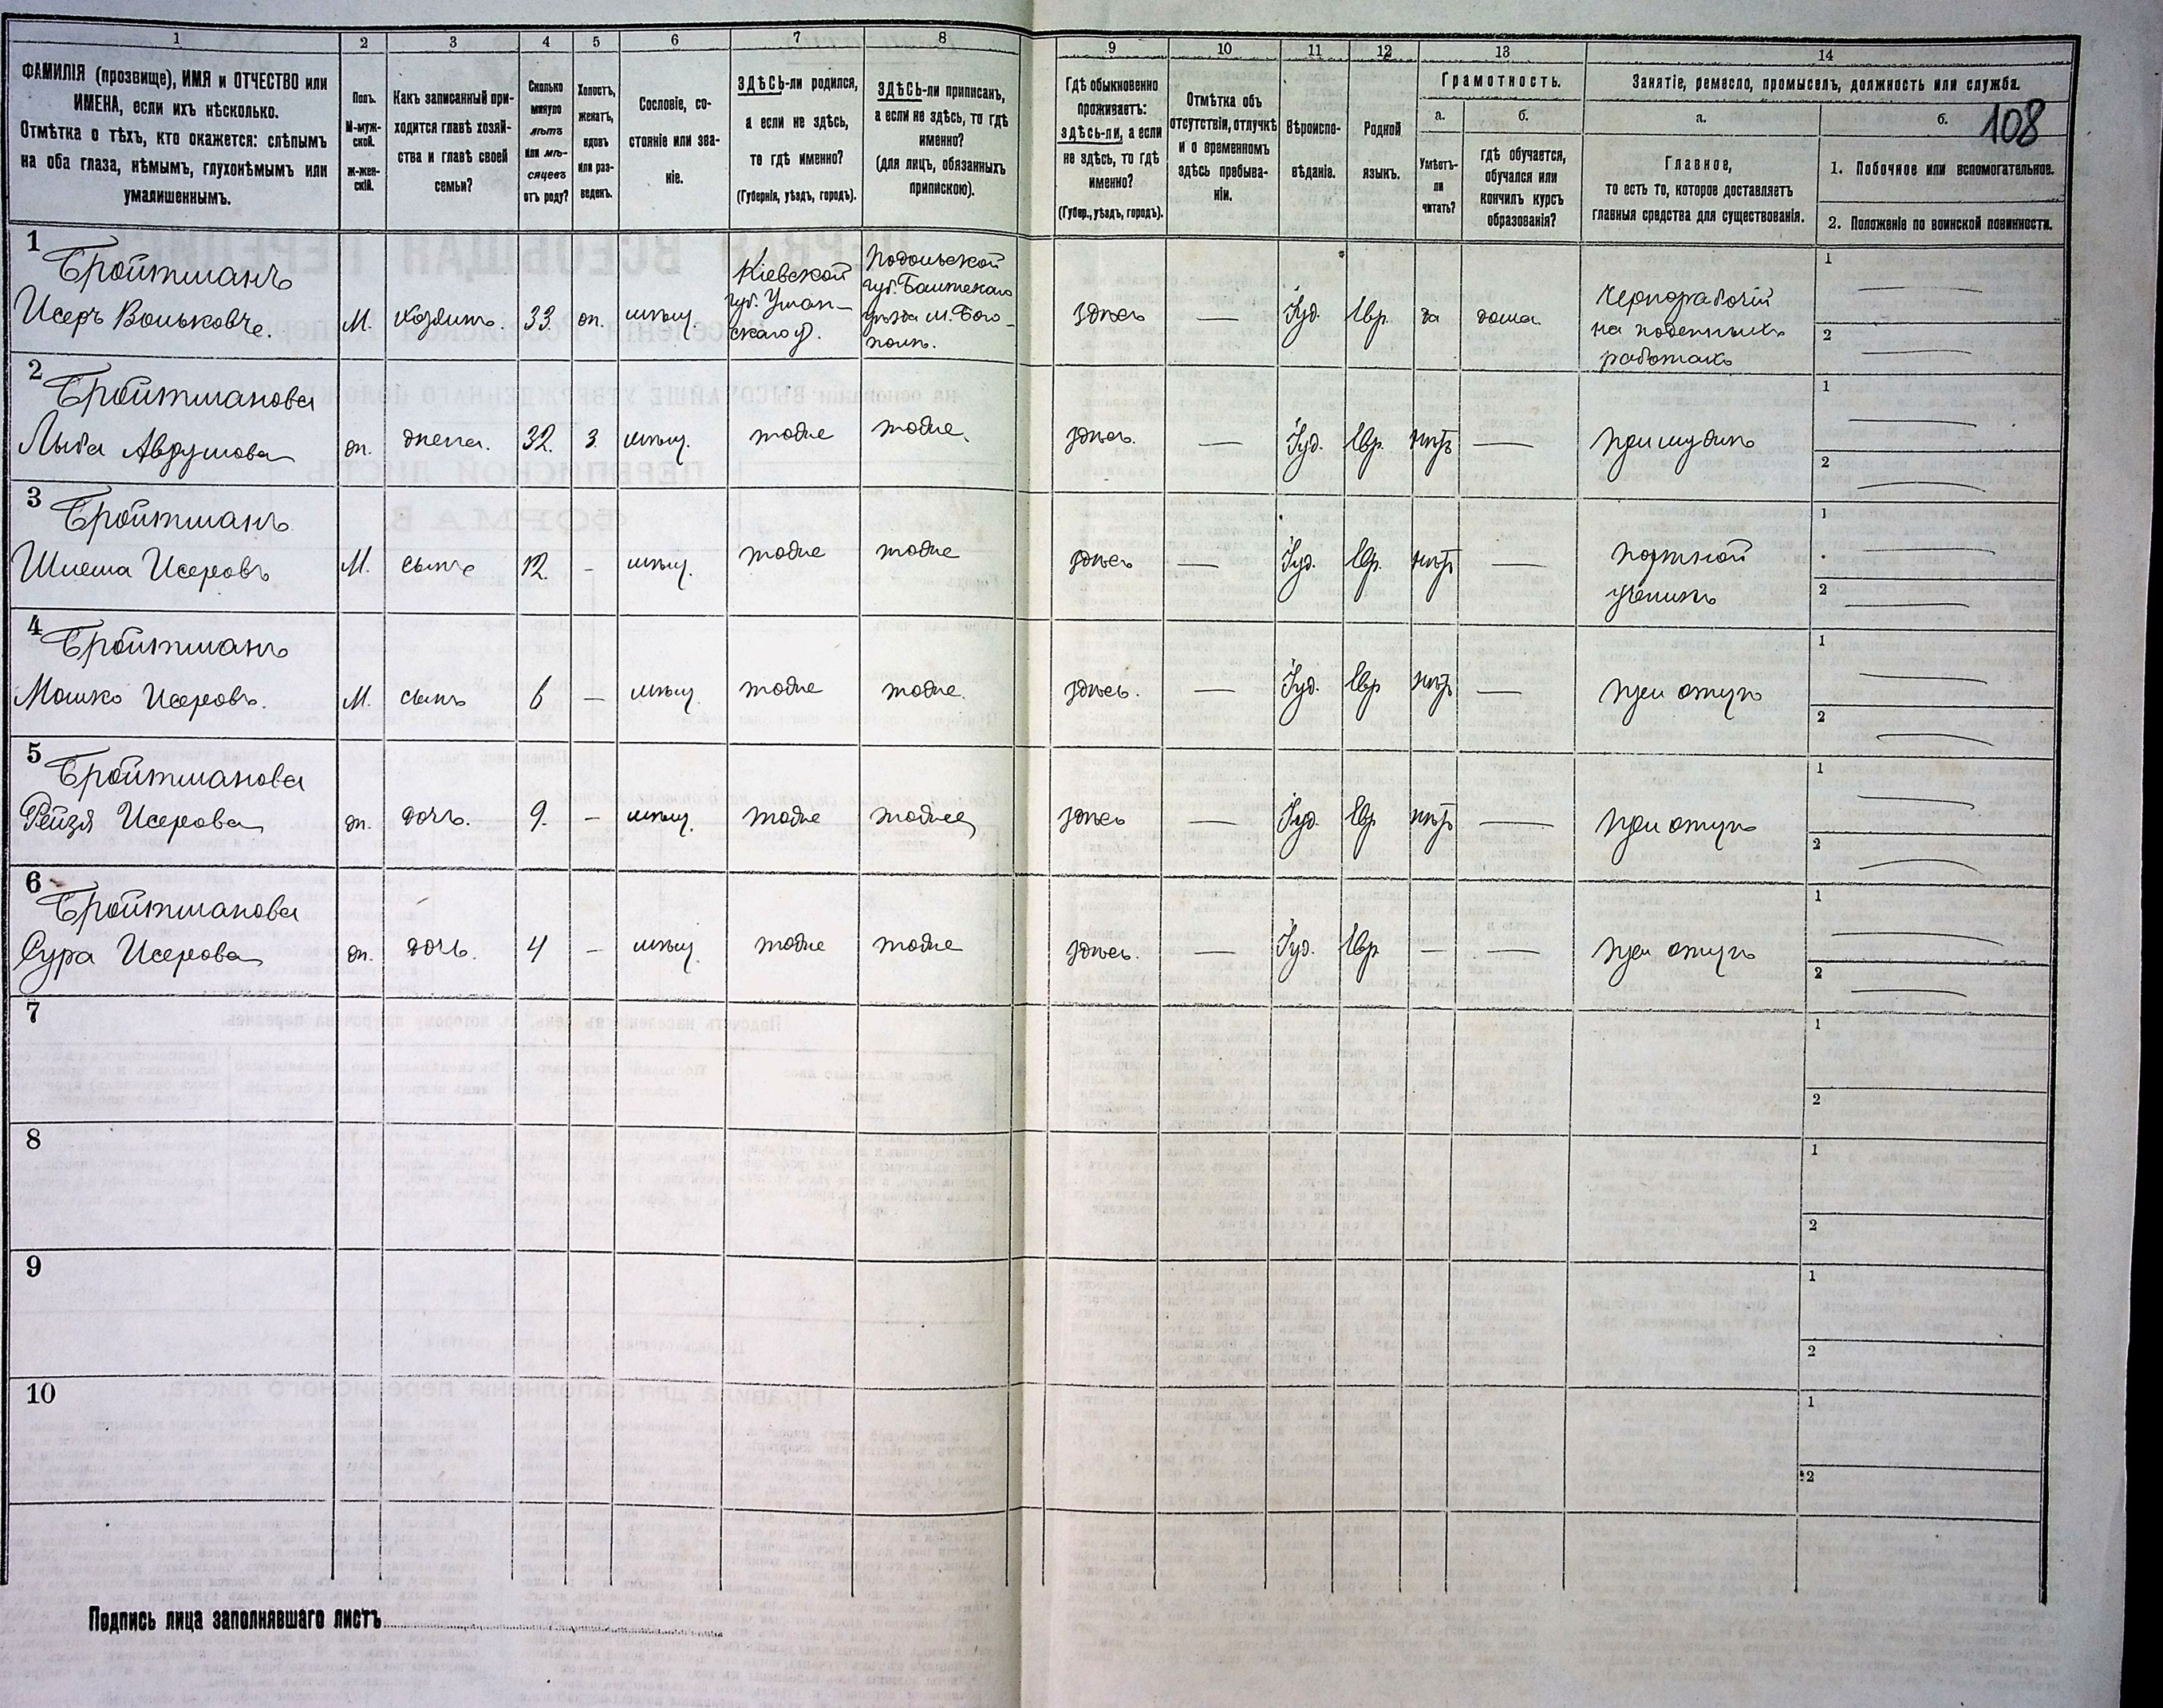 1 2 3 4 5 6 7 8 9 10 11 12 13 14
ФАМИЛІЯ (прозвище), ИМЯ и ОТЧЕСТВО или
ИМЕНА, если ихъ нѣсколько.
Отмѣтка о тѣхъ, кто окажется: слѣпымъ
на оба глаза, нѣмымъ, глухонѣмымъ или
умалишеннымъ.
Полъ.
М-муж-
ской.
ж-жен-
скій.
Какъ записанный при-
ходится главѣ хозяй-
ства и главѣ своей
семьи?
Сколько
минуло
лѣтъ
или мѣ-
сяцевъ
отъ роду?
Холостъ,
женатъ,
вдовъ
или раз-
веденъ.
Сословіе, со-
стояніе или зва-
ніе.
ЗДѢСЬ-ли родился,
а если не здѣсь,
то гдѣ именно?
(Губернія, уѣздъ, городъ).
ЗДѢСЬ-ли приписанъ,
а если не здѣсь, то гдѣ
именно?
(для лицъ, обязанныхъ
припискою).
Гдѣ обыкновенно
проживаетъ:
здѣсь-ли, а если
не здѣсь, то гдѣ
именно?
(Губер., уѣздъ, городъ).
Отмѣтка объ
отсутствіи, отлучкѣ
и о временномъ
здѣсь пребыва-
ніи.
Вѣроиспо-
вѣданіе.
Родной
языкъ.
Грамотность.
а.
Умѣетъ-
ли
читать?
б.
гдѣ обучается,
обучался или
кончилъ курсъ
образованія?
Занятіе, ремесло, промыселъ, должность или служба.
а.
Главное,
то есть то, которое доставляетъ
главныя средства для существованія.
б.
108
1. Побочное или вспомогательное.
2. Положеніе по воинской повинности.
1
Бройтманъ
Исеръ Вольковъ
М.
хозяинъ.
33
ж.
мѣщ.
Кіевской
губ. Уман-
скаго у.
Подольской
губ. Балтскаго
уѣзда м. Бого-
поль.
здѣсь
—
Іуд.
Евр.
да
дома
Чернорабочій
на поденныхъ
работахъ
1 —
2 —
2
Бройтманова
Авдумова
ж.
жена.
32.
з.
мѣщ.
тоже
тоже
здѣсь.
—
Іуд.
Евр.
нѣтъ
—
при мужѣ
1 —
2 —
3
Бройтманъ
Шлема Исеровъ
М.
сынъ
12.
-
мѣщ.
тоже
тоже
здѣсь
—
Іуд.
Евр.
нѣтъ
—
портной
ученикъ
1 —
2 —
4
Бройтманъ
Мошко Исеровъ.
М.
сынъ
6
—
мѣщ.
тоже
тоже.
здѣсь.
—
Іуд.
Евр
нѣтъ
—
при отцѣ
1 —
2 —
5
Бройтманова
Рейзя Исерова
ж.
дочь.
9.
-
мѣщ.
тоже
тоже
здѣсь
—
Іуд.
Евр
нѣтъ
—
при отцѣ
1 —
2 —
6
Бройтманова
Сура Исерова
ж.
дочь.
4
-
мѣщ.
тоже
тоже
здѣсь.
—
Іуд.
Евр.
—
—
при отцѣ
1 —
2 —
7
1
2
8
1
2
9
1
2
10
1
2
Подпись лица заполнявшаго листъ